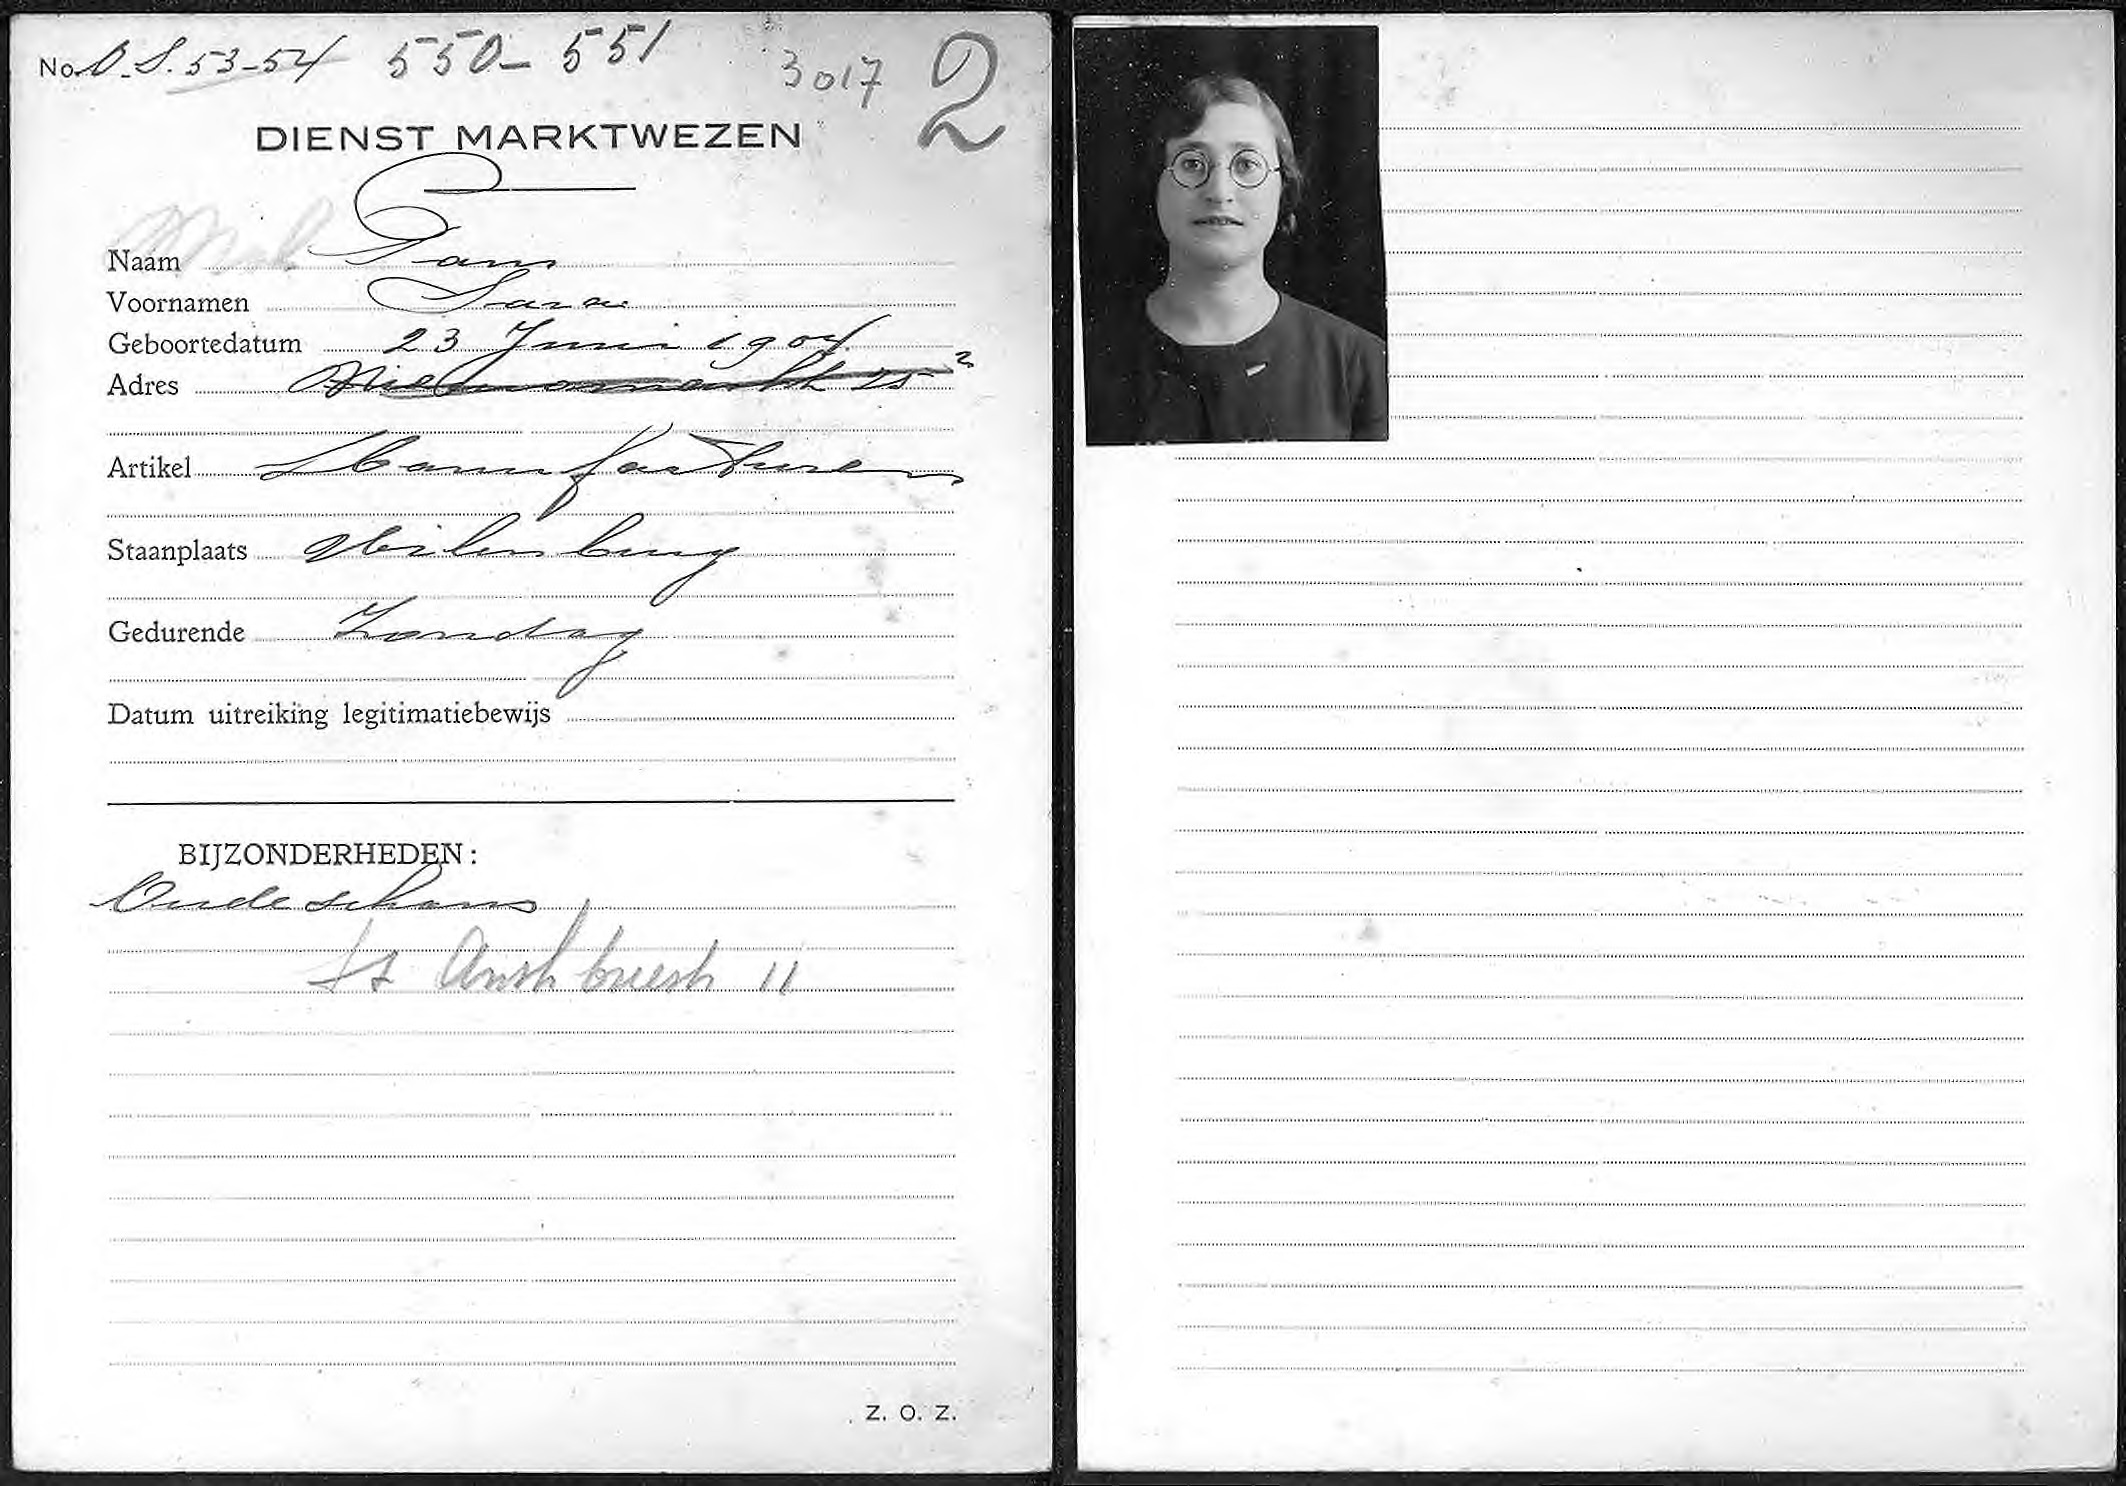 No. O.S. 53-54 550-551 3017 2
DIENST MARKTWEZEN
Naam Gans
Voornamen Sara
Geboortedatum 23 Juni 1904
Adres Nieuwmarkt 25 2
Artikel Manufacturen
Staanplaats Uilenburg
Gedurende Zondag
Datum uitreiking legitimatiebewijs
BIJZONDERHEDEN:
Oude schans
11
Z. O. Z.